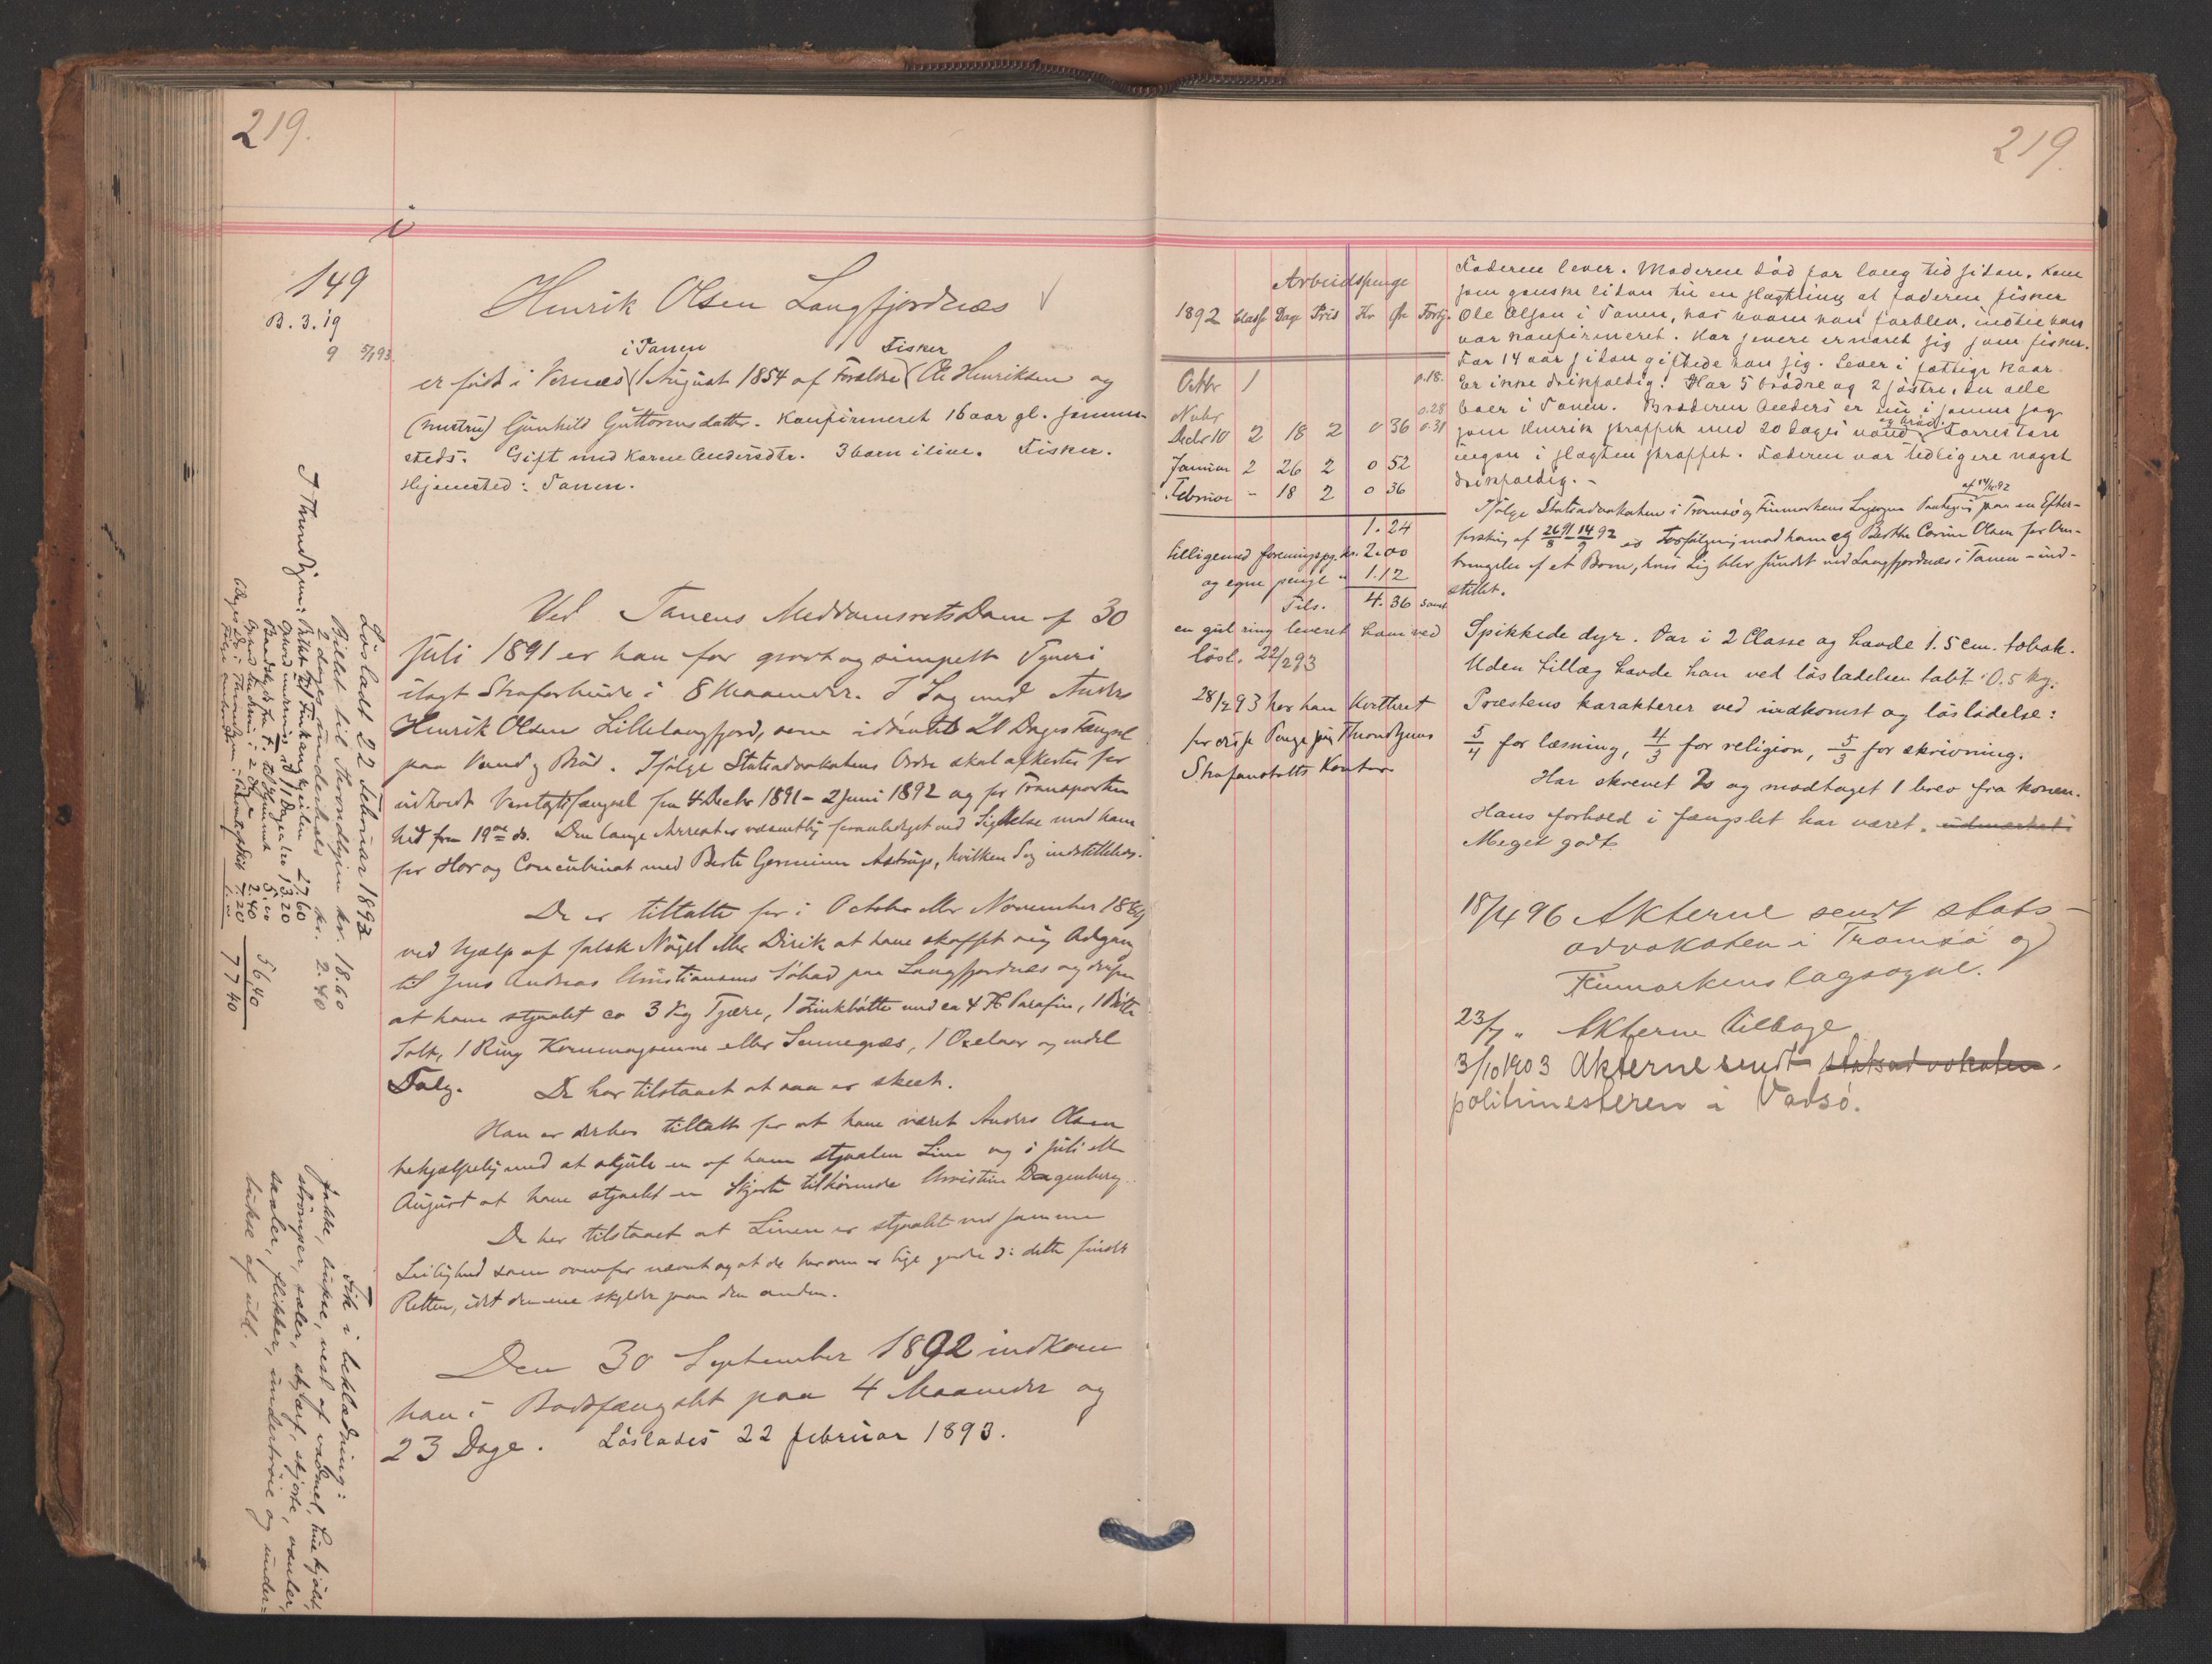 219.
i
149
B. 3. 19
9 5/1 93.
Henrik Olsen Langfjordnæs
i Tanen Fisker
er født i Vernæs (1 August 1854 af Forældre (Ole Henriksen og
(hustru) Gunhild Guttormsdatter. Konfirmeret 16 aar gl. sammesteds. Gift med Karen Andersdtr. 3 barn ilive. Fisker.
Hjemsted: Tanen.
Ved Tanens MeddomsretsDom af 30
Juli 1891 er han for grovt og simpelt Tyveri
ilagt Strafarbeide i 8 Maaneder. I Sag med Anders
Henrik Olsen Lillelangfjord, som idømtes 20 Dages Fængsel
paa Vand & Brød. Ifølge Statsadvokatens Ordre skal afkortes for
udholdt Varetægtsfængsel fra 4 Decbr 1891 - 2 Juni 1892 og for Transporten
hid fra 19de ds. Den lange Arrest er væsentlig foranlediget ved Sigtelse mod ham
for Hor og Concubinat med Berte
De er tiltalte for i October eller November 18
ved Hjælp af falsk Nøgel eller Dirik at have skaffet sig Adgang
til Jens Andreas Christiansens Søbod paa Langfjordnæs og derfra
at have stjaalet ca 3 Kg Tjære, 1 Zinkbøtte med ca 4 Parafin, 1 Bøtte
Salt, 1 Ring eller Sennegræs, 1 Oxelaar og endel
Talg. De har tilstaaet at saa er skeet.
Han er derhos tiltalt for at have været Anders Olsen
behjælpelig med at skjule en af ham stjaalen Line og i Juli eller
August at have stjaalet en Skjorte tilhørende Christine
De har tilstaaet at Linen er stjaalet ved samme
Leilighed som ovenfor nævnt og at de herom er lige gode
Retten, idet den ene skylder paa den anden.
Den 30 September 1892 indkom
han i Bodsfængslet paa 4 Maaneder og
23 Dage. Løslades 22 februar 1893.
Løsladt 22 februar 1893
Billet til Throndhjem kr. 18.60
2 dages underhold kr. 2.40
I Throndhjem: 27.60
13.20
5.00
2.40
7.20
56 40
77 40
Fik i beklædning:
jakke, bukse, vest af vadmel,
strømper, sæler, skjærf, skjorte, vanter,
undertrøie og underbukse af uld.
219.
Arbeidspenge
1892 Classe Dage Pris Kr Øre Fortj.
Octbr 1 0.18.
Nvbr 0.28
Decbr 10 2 18 2 0 36 0.31
Januar 2 26 2 0 52
Februar - 18 2 0 36
1.24
tilligemed foreningspg. kr. 2.00
og egne penge " 1.12
Tils. 4.36 samt
en gul ring leveret ham ved
løsl. 22/2 93
28/2 93 har han kvitteret
for disse Penge paa Throndhjems
Strafanstalts Kontor
Faderen lever. Moderen død for lang tid siden. Kom
som ganske liden til en slægtning af faderen fisker
Ole Olsen i Tanen, hos hvem han forblev, indtil han
var konfirmeret. Har senere ernæret sig som fisker.
For 14 aar siden giftede han sig. Lever i fattige kaar.
Er ikke drikfældig. Har 5 brødre og 2 søstre, der alle
boer i Tanen. Broderen Anders er nu i samme sag
og brød.
som Henrik straffet med 20 dages vand Forresten
ingen i slægten straffet. Faderen var tidligere noget
drikfældig. -
af 14/10 92
Ifølge Statsadvokaten i Tromsø og Finmarkens Lagsogns Paategning paa en Efterforskning af 26/8 91 - 14/9 92 er Forfølgning mod ham og Berthe Olsen for Ombringelse af et Barn, hvis Lig blev fundet ved Langfjordnæs i Tanen - indstillet.
Spikkede dyr. Var i 2 Classe og havde 1.5 cm. tobak.
Uden tillæg havde han ved løsladelsen tabt 0.5 kg.
Præstens karakterer ved indkomst og løsladelse:
5/4 for læsning, 4/3 for religion, 5/3 for skrivning.
Har skrevet 2 og modtaget 1 brev fra konen.
Hans forhold i fængslet har været. udmærket
Meget godt.
18/4 96 Akterne sendt statsadvokaten i Tromsø og
Finmarkens lagsogne.
23/7 " Akterne tilbage
3/10 1903 Akterne sendt statsadvokaten.
politimesteren i Vadsø.